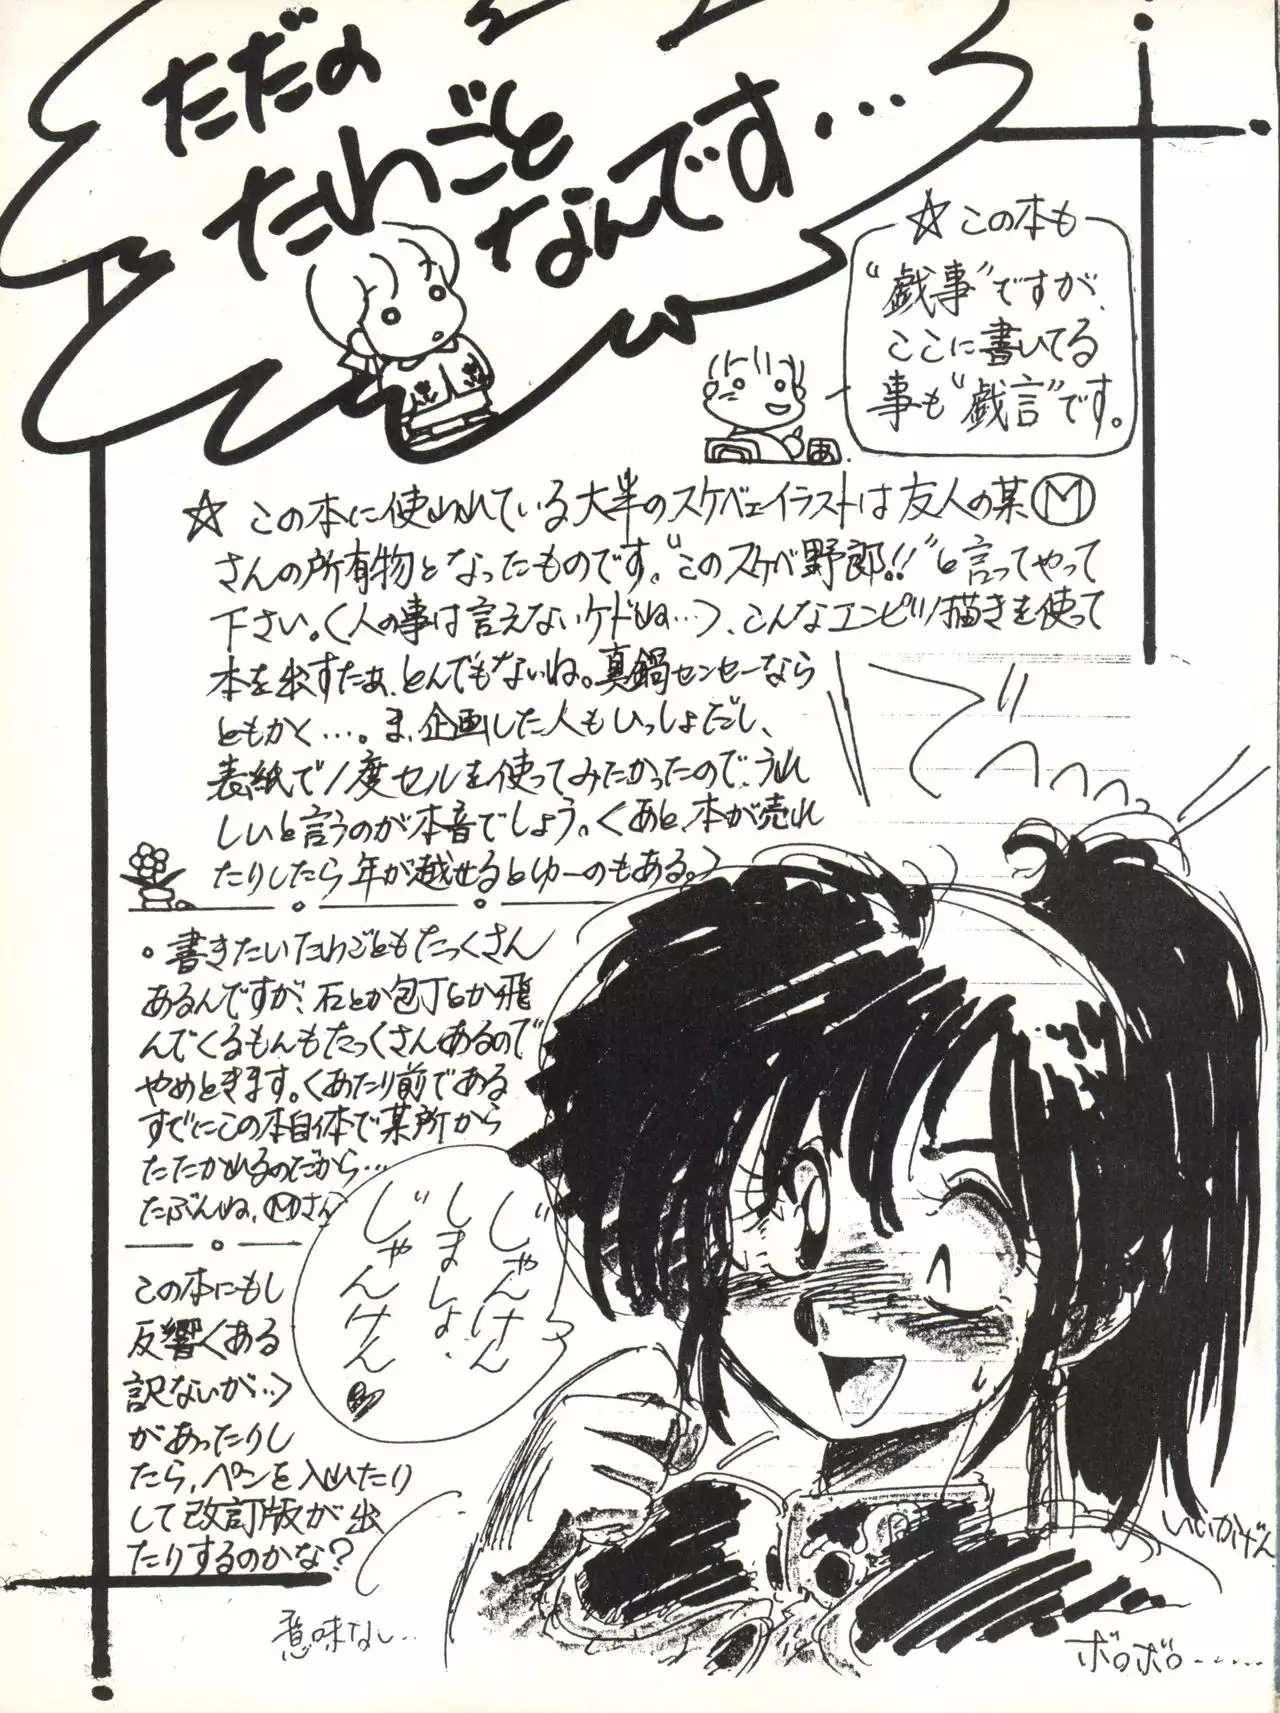 ただの
たわごと
なんです…
☆この本も
“戯事”ですが、
ここに書いてる
事も“戯言”です。
あ
☆この本に使われている大半のスケベェイラストは友人の某Ⓜ
さんの所有物となったものです。“このスケベ野郎!!”と言ってやって
下さい。〈人の事は言えないケドね…〉、こんなエンピツ描きを使って
本を出すたぁ、とんでもないね。真鍋センセーなら
ともかく…。ま、企画した人もいっしょだし、
表紙で1度セルを使ってみたかったので、うれ
しいと言うのが本音でしょう。〈あと、本が売れ
たりしたら年が越せるとゆーのもある。〉
・書きたいたわごともたっくさん
あるんですが、石とか包丁とか飛
んでくるもんもたっくさんあるので
やめときます。〈あたり前である
すでにこの本自体で某所から
たたかれるのだから…
たぶんね、Ⓜさん
この本にもし
反響〈ある
訳ないが…〉
があったりし
たら、ペンを入れたり
して改訂版が出
たりするのかな?
じゃんけん
しましょ、
じゃんけん♥
いいかげん
意味なし…
ボロボロ……